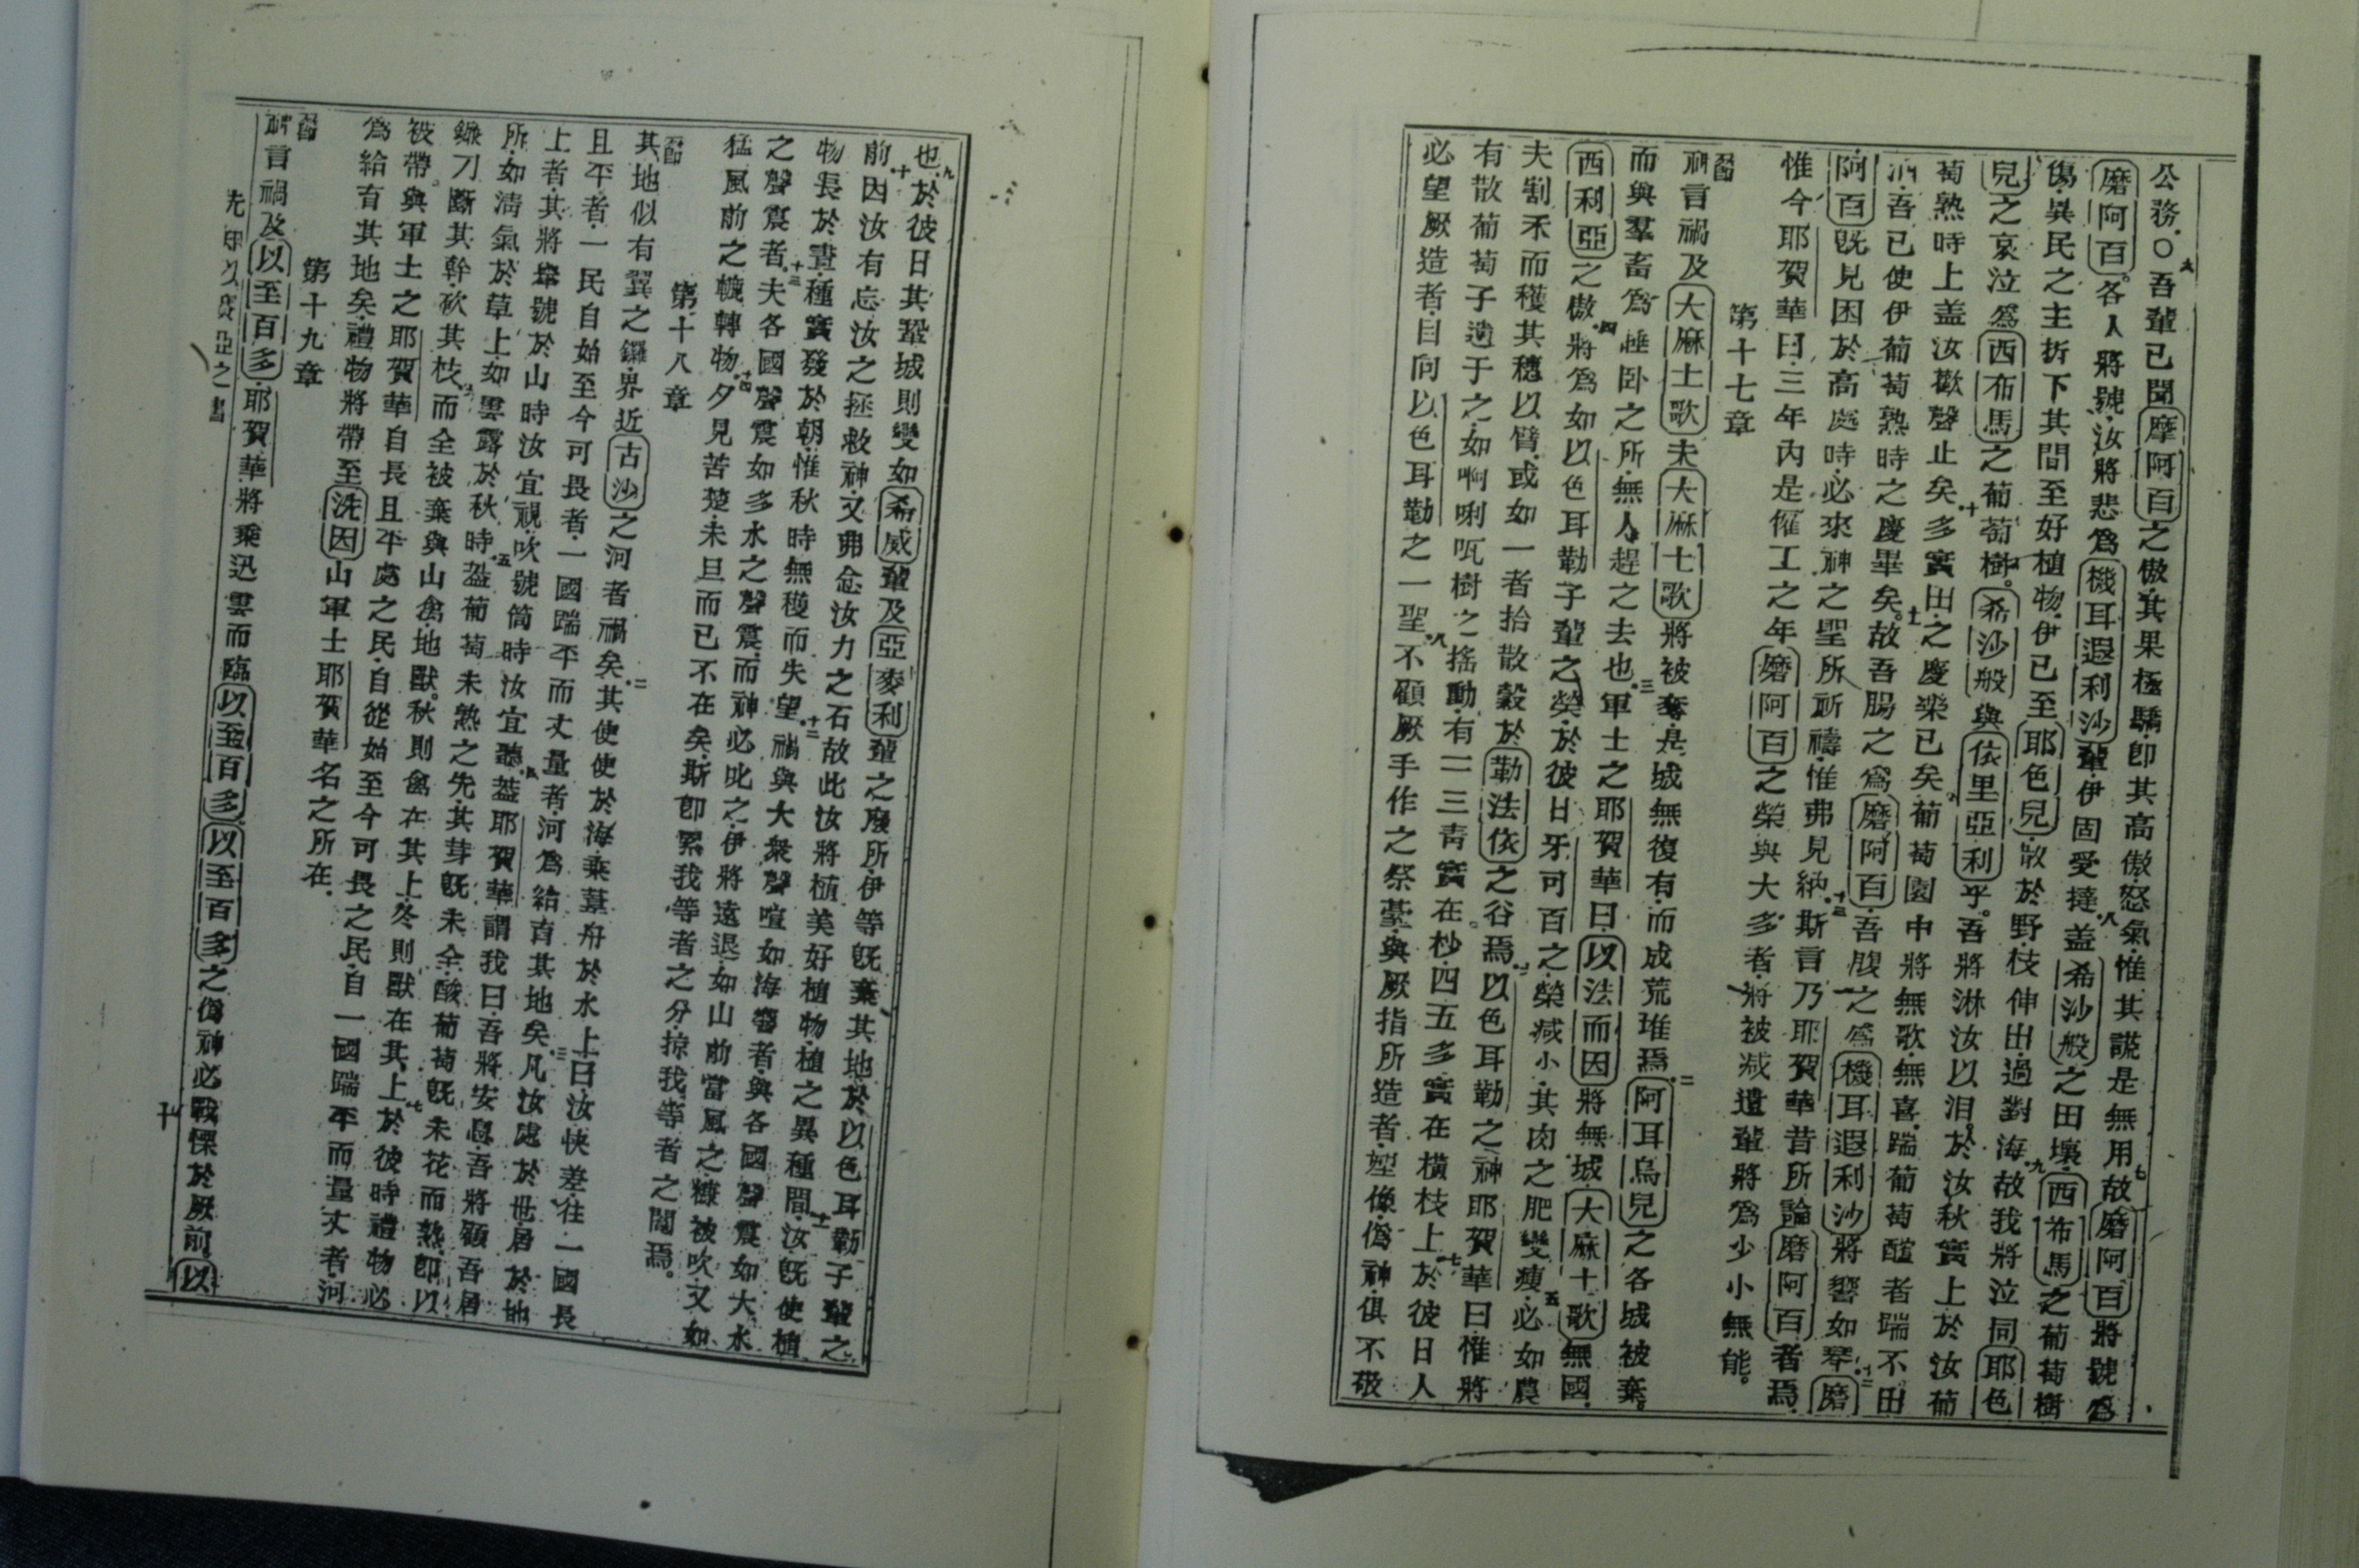 公務○六吾輩已聞摩阿百之傲其果極驕卽其高傲怒氣惟其謊是無用七故磨阿百將號爲
磨阿百各人將號汝將悲爲機耳遐利沙輩伊固受撻八盖希沙般之田壞西布馬之葡萄樹
傷異民之主折下其間至好植物伊已至耶色兒散於野枝伸出過對海九故我將泣同耶色
兒之哀泣爲西布馬之葡萄樹希沙般與依里亞利乎吾將淋汝以泪於汝秋實上於汝葡
萄熟時上盖汝歡聲止矣十多實田之慶樂已矣葡萄園中將無歌無喜踹葡萄醡者踹不出
吾已使伊葡萄熟時之慶畢矣十一故吾腸之爲磨阿百吾腹之爲機耳遐利沙將響如琴十二磨
阿百旣見困於高處時必來神之聖所祈禱惟弗見納十三斯言乃耶賀華昔所論磨阿百者焉
惟今耶賀華曰三年內是僱工之年磨阿百之榮與大多者將被减遺輩將爲少小無能
第十七章
言禍及大麻士歌夫大麻士歌將被奪是城無復有而成荒堆焉二阿耳烏兒之各城被棄
而與羣畜爲睡卧之所無人趕之去也三軍士之耶賀華曰以法而因將無城大麻士歌無國
西利亞之傲四將爲如以色耳勒子輩之榮於彼日牙可百之榮减小其肉之肥變瘦五必如農
夫割禾而穫其穗以臂或如一者拾散穀於勒法依之谷焉六以色耳勒之神耶賀華曰惟將
有散葡萄子遺于之如啊唎㕽樹之搖動有二三靑實在杪四五多實在橫枝上七於彼日人
必望厥造者目向以色耳勒之一聖八不顧厥手作之祭臺與厥指所造者俱不敬
也九於彼日其鞏城則變如希威輩及亞麥利輩之廢所伊等旣棄其地於以色耳勒子輩之
前十因汝有忘汝之拯救神又弗念汝力之石故此汝將植美好植物植之異種間十一汝旣使植
物長於晝種實發於朝惟秋時無穫而失望十二禍與大衆聲喧如海響者與各國聲震如大水
之聲震者十三夫各國聲震如多水之聲震而神必叱之伊將遠退如山前當風之糠被吹又如
猛風前之轆轉物十四夕見苦楚未旦而已不在矣斯卽累我等者之分掠我等者之鬮焉
第十八章
其地似有翼之鑼界近古沙之河者禍矣二其使使於海乘葦舟於水上曰汝快差往一國長
且平者一民自始至今可畏者一國踹平而丈量者河爲給有其地矣三凡汝處於世居於地
上者其將舉號於山時汝宜視吹號筒時汝宜聽四葢耶賀華謂我曰吾將安息吾將顧吾居
所如淸氣於草上如雲露於秋時五葢葡萄未熟之先其芽旣未全酸葡萄旣未花而熟卽以
鐮刀斷其幹砍其枝六而全被棄與山禽地獸秋則禽在其上冬則獸在其上七於彼時禮物必
被帶與軍士之耶賀華自長且平處之民自從始至今可畏之民自一國踹平而量丈者河
爲給有其地矣禮物將帶至洗因山軍士耶賀華名之所在
第十九章
言禍及以至百多耶賀華將乘迅雲而臨以至百多以至百多之僞神必戰慄於厥前以